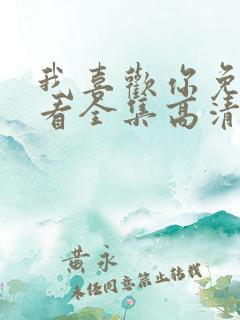 我喜歡你免
看全集高清
黄永
未经同意禁止转载